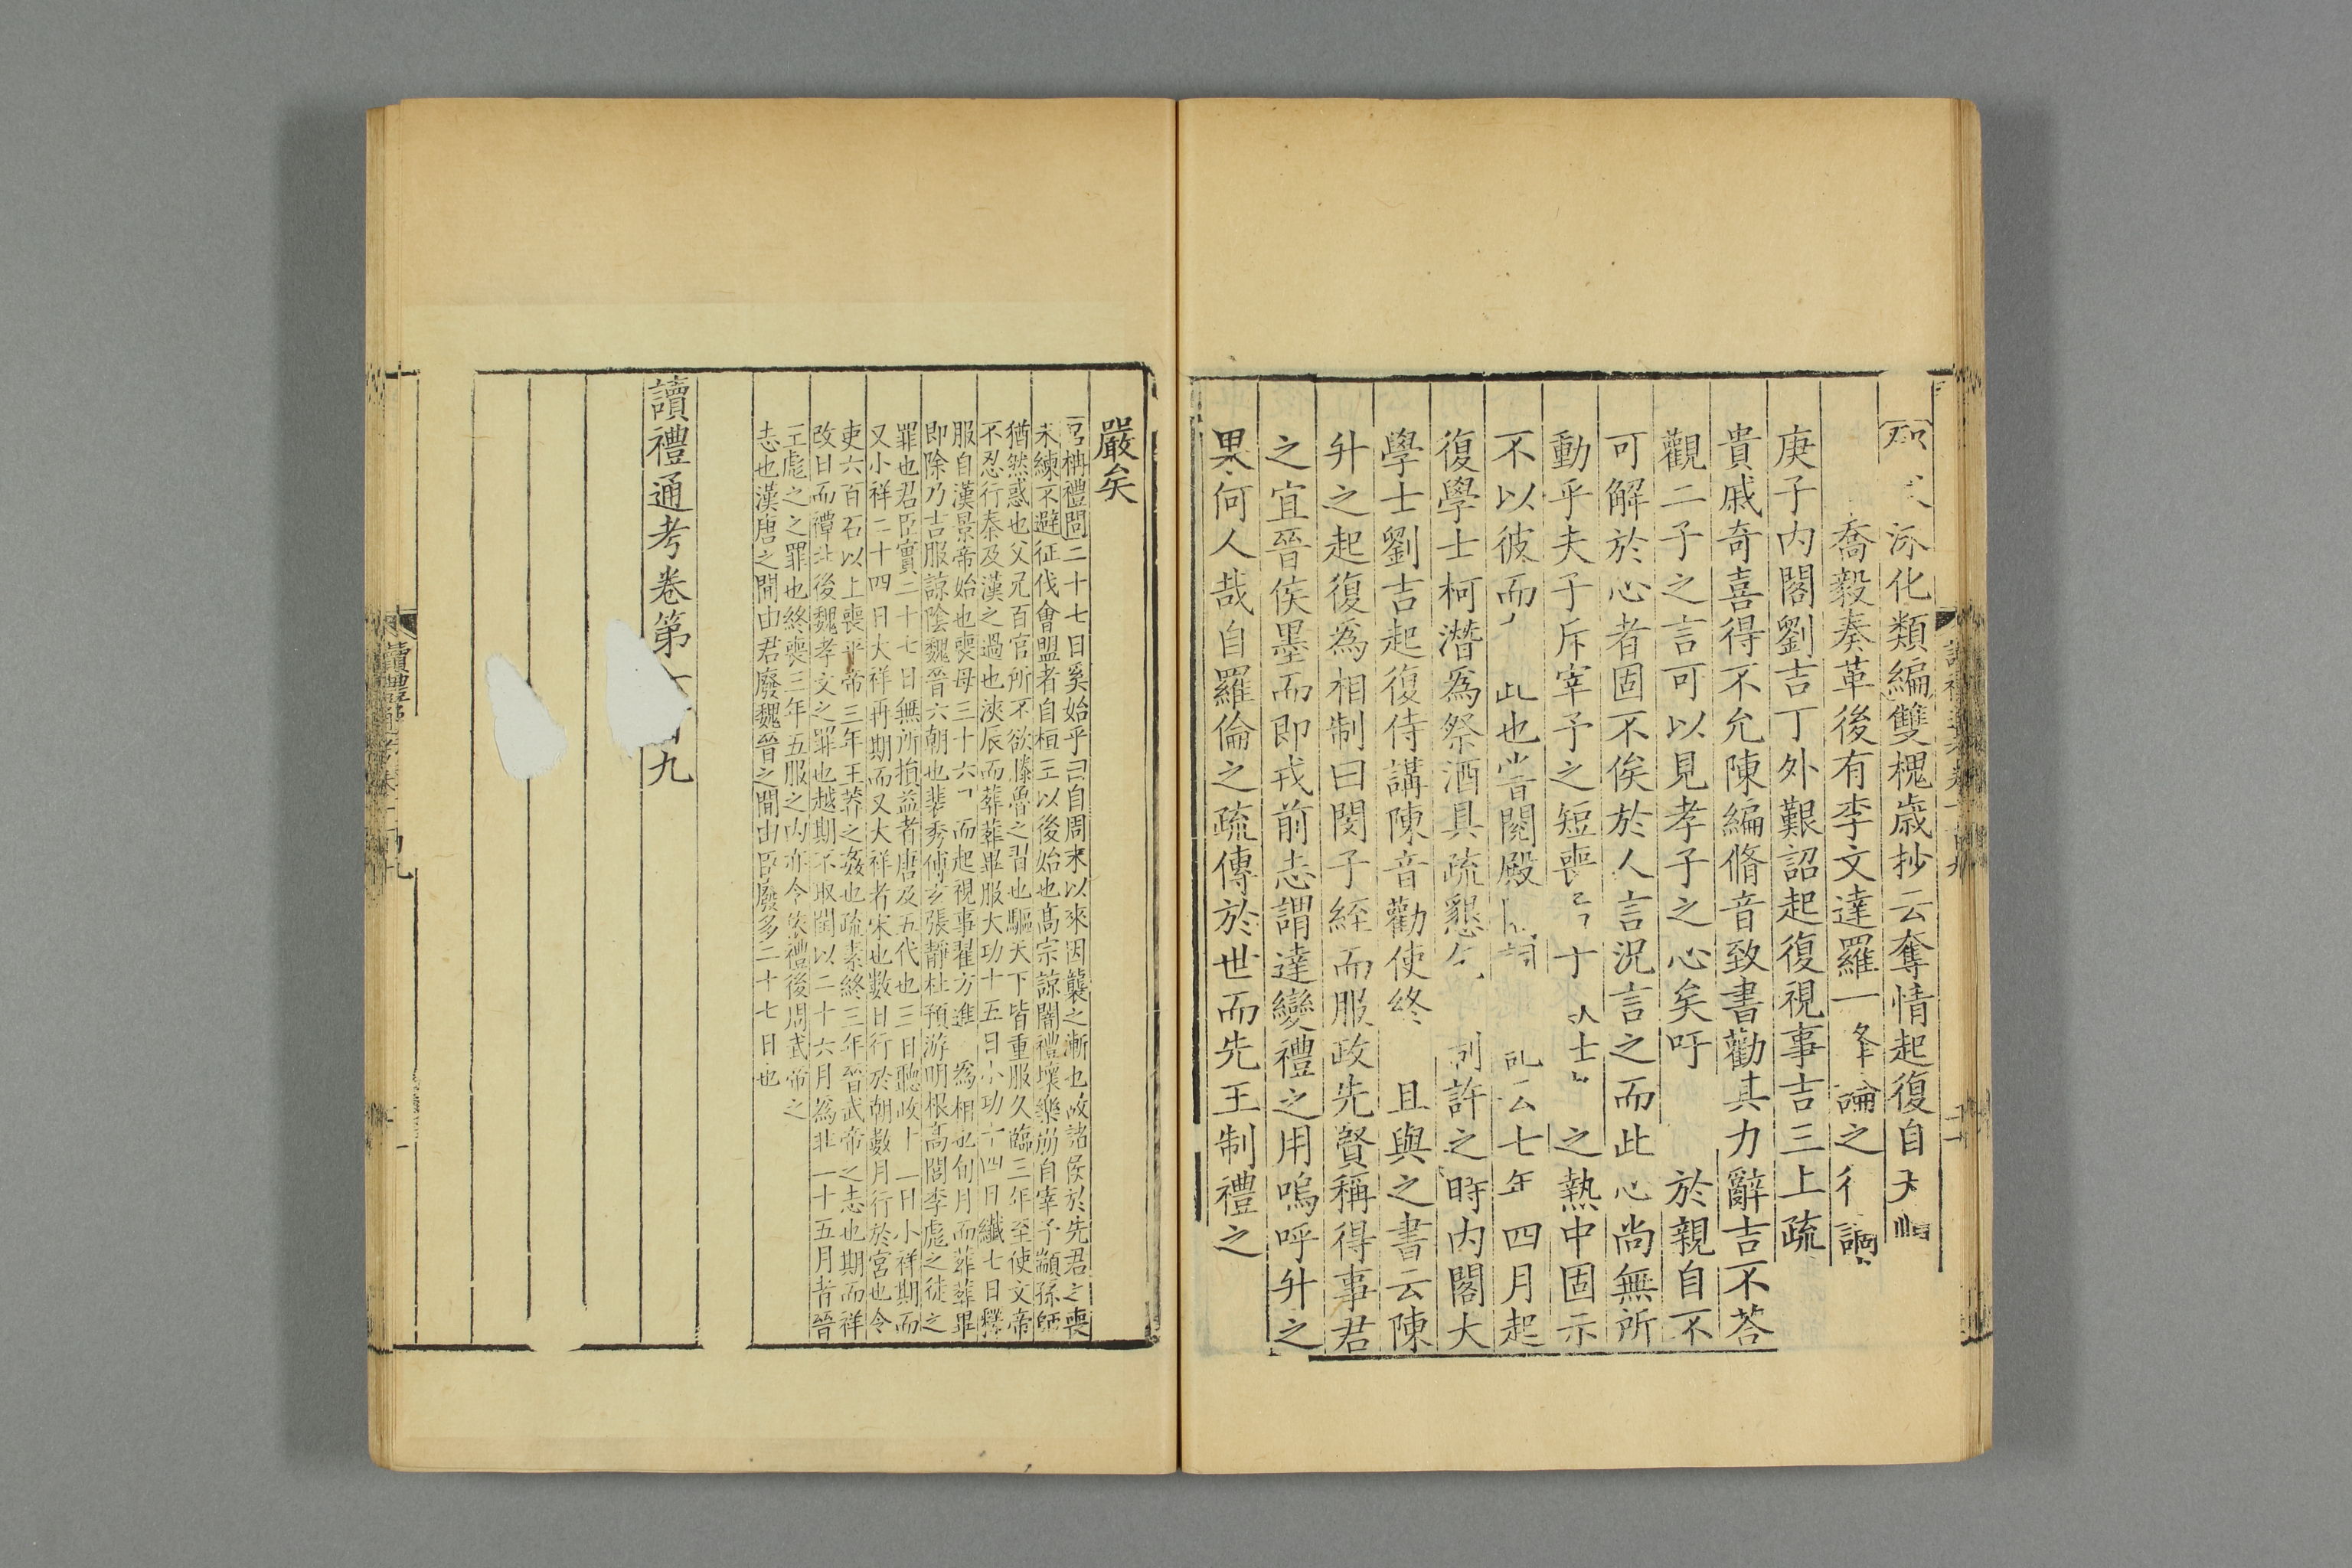 添化類編雙槐歲抄云奪情起復自
喬毅奏革後有李文達羅一峯論之
庚子內閣劉吉丁外艱詔起復視事吉三上疏
貴戚奇喜得不允陳編脩音致書勸其力辭吉不荅
觀二子之言可以見孝子之心矣吁 於親自不
可解於心者固不俟於人言況言之而此心尚無所
動乎夫子斥宰予之短喪 之熱中固示
不以彼而 此也嘗閱殿 云七年四月起
復學士柯潛爲祭酒具疏懇 許之時內閣大
學士劉吉起復侍講陳音勸使終 且與之書云陳
升之起復爲相制曰閔子絰而服政先賢稱得事君
之宜晉侯墨而即戎前志謂達變禮之用嗚呼升之
果何人哉自羅倫之疏傳於世而先王制禮之
嚴矣
禮問二十七日奚始乎曰自周末以來因襲之漸也故諸侯於先君之喪
未練不避征伐會盟者自桓王以後始也髙宗諒闇禮壞樂崩自宰予顓孫師
猶然惑也父兄百官所不欲滕魯之習也驅天下皆重服久臨三年至使文帝
不忍行秦及漢之過也浹辰而葬葬畢服大功十五日小功十四日纖七日釋
服自漢景帝始也喪母三十六 而起視事翟方進 爲相也旬月而葬葬畢
即除乃吉服諒陰魏晉六朝也裴秀傅玄張靜杜預游明根髙閭李彪之徒之
罪也君臣實二十七日無所損益者唐及五代也三日聽政十二日小祥期而
又小祥二十四日大祥再期而又大祥者宋也數日行於朝數月行於宮也令
吏六百石以上喪平帝三年王莽之姦也疏素終三年晉武帝之志也期而祥
改日而禫北後魏孝文之罪也越期不取閏以二十六月爲非二十五月者晉
王彪之之罪也終喪三年五服之內亦令依禮後周武帝之
志也漢唐之間由君廢魏晉之間由臣廢多二十七日也
讀禮通考卷第 九